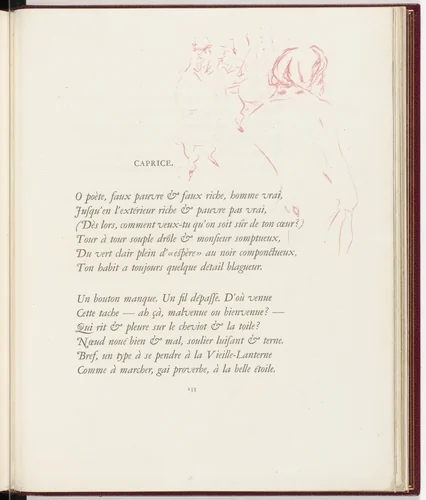 CAPRICE.
O poète, faux pauvre & faux riche, homme vrai,
Jusqu'en l'extérieur riche & pauvre pas vrai,
(Dès lors, comment veux-tu qu'on soit sûr de ton cœur?)
Tour à tour souple drôle & monsieur somptueux,
Du vert clair plein d'«espère» au noir componctueux,
Ton habit a toujours quelque détail blagueur.
Un bouton manque. Un fil dépasse. D'où venue
Cette tache — ah çà, malvenue ou bienvenue? —
Qui rit & pleure sur le cheviot & la toile?
Nœud noué bien & mal, soulier luisant & terne.
Bref, un type à se pendre à la Vieille-Lanterne
Comme à marcher, gai proverbe, à la belle étoile.